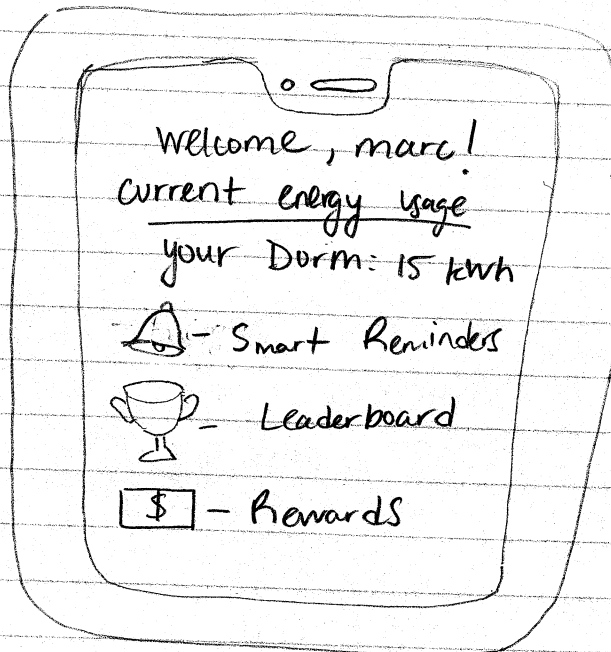 Welcome, marc!
Current energy usage
your Dorm: 15 kwh
- Smart Reminders
- Leaderboard
$ - Rewards